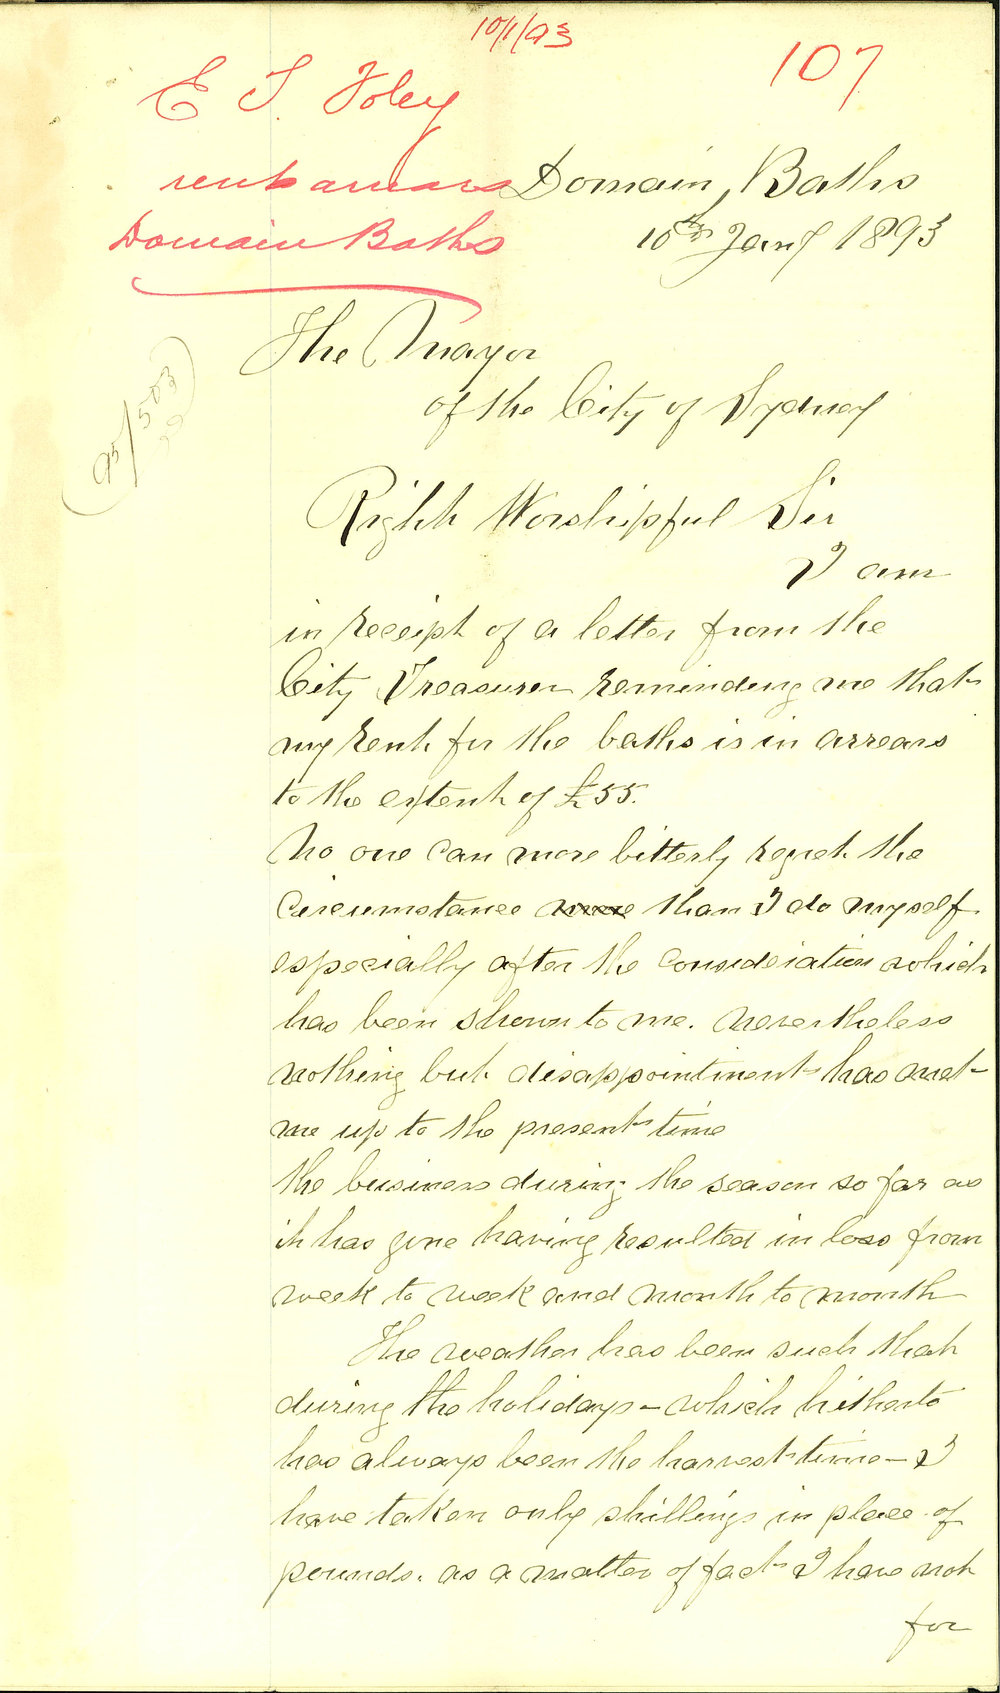 10/1/93
107
E T. Foley
rent arrears
Domain Baths
Domain Baths
10th Jany 1893
The Mayor
of the City of Sydney
95/503
Right Worshipful Sir
I am
in receipt of a letter from the
City Treasurer reminding me that
my rent for the baths is in arrears
to the extent of £55.
No one can more bitterly regret the
circumstance more than I do myself
especially after the consideration which
has been shown to me. Nevertheless
nothing but disappointment has met
me up to the present time
the business during the season so far as
it has gone having resulted in loss from
week to week and month to month
The weather has been such that
during the holidays - which hitherto
has always been the harvest time - I
have taken only shillings in place of
pounds. as a matter of fact I have not
for